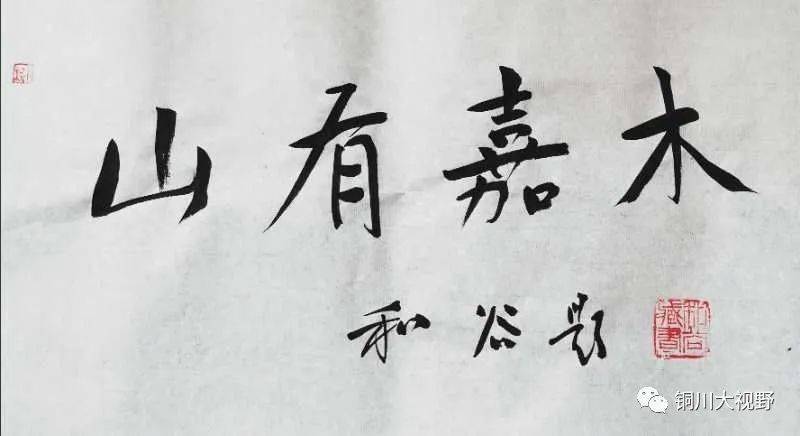 山有嘉木
和谷题
铜川大视野